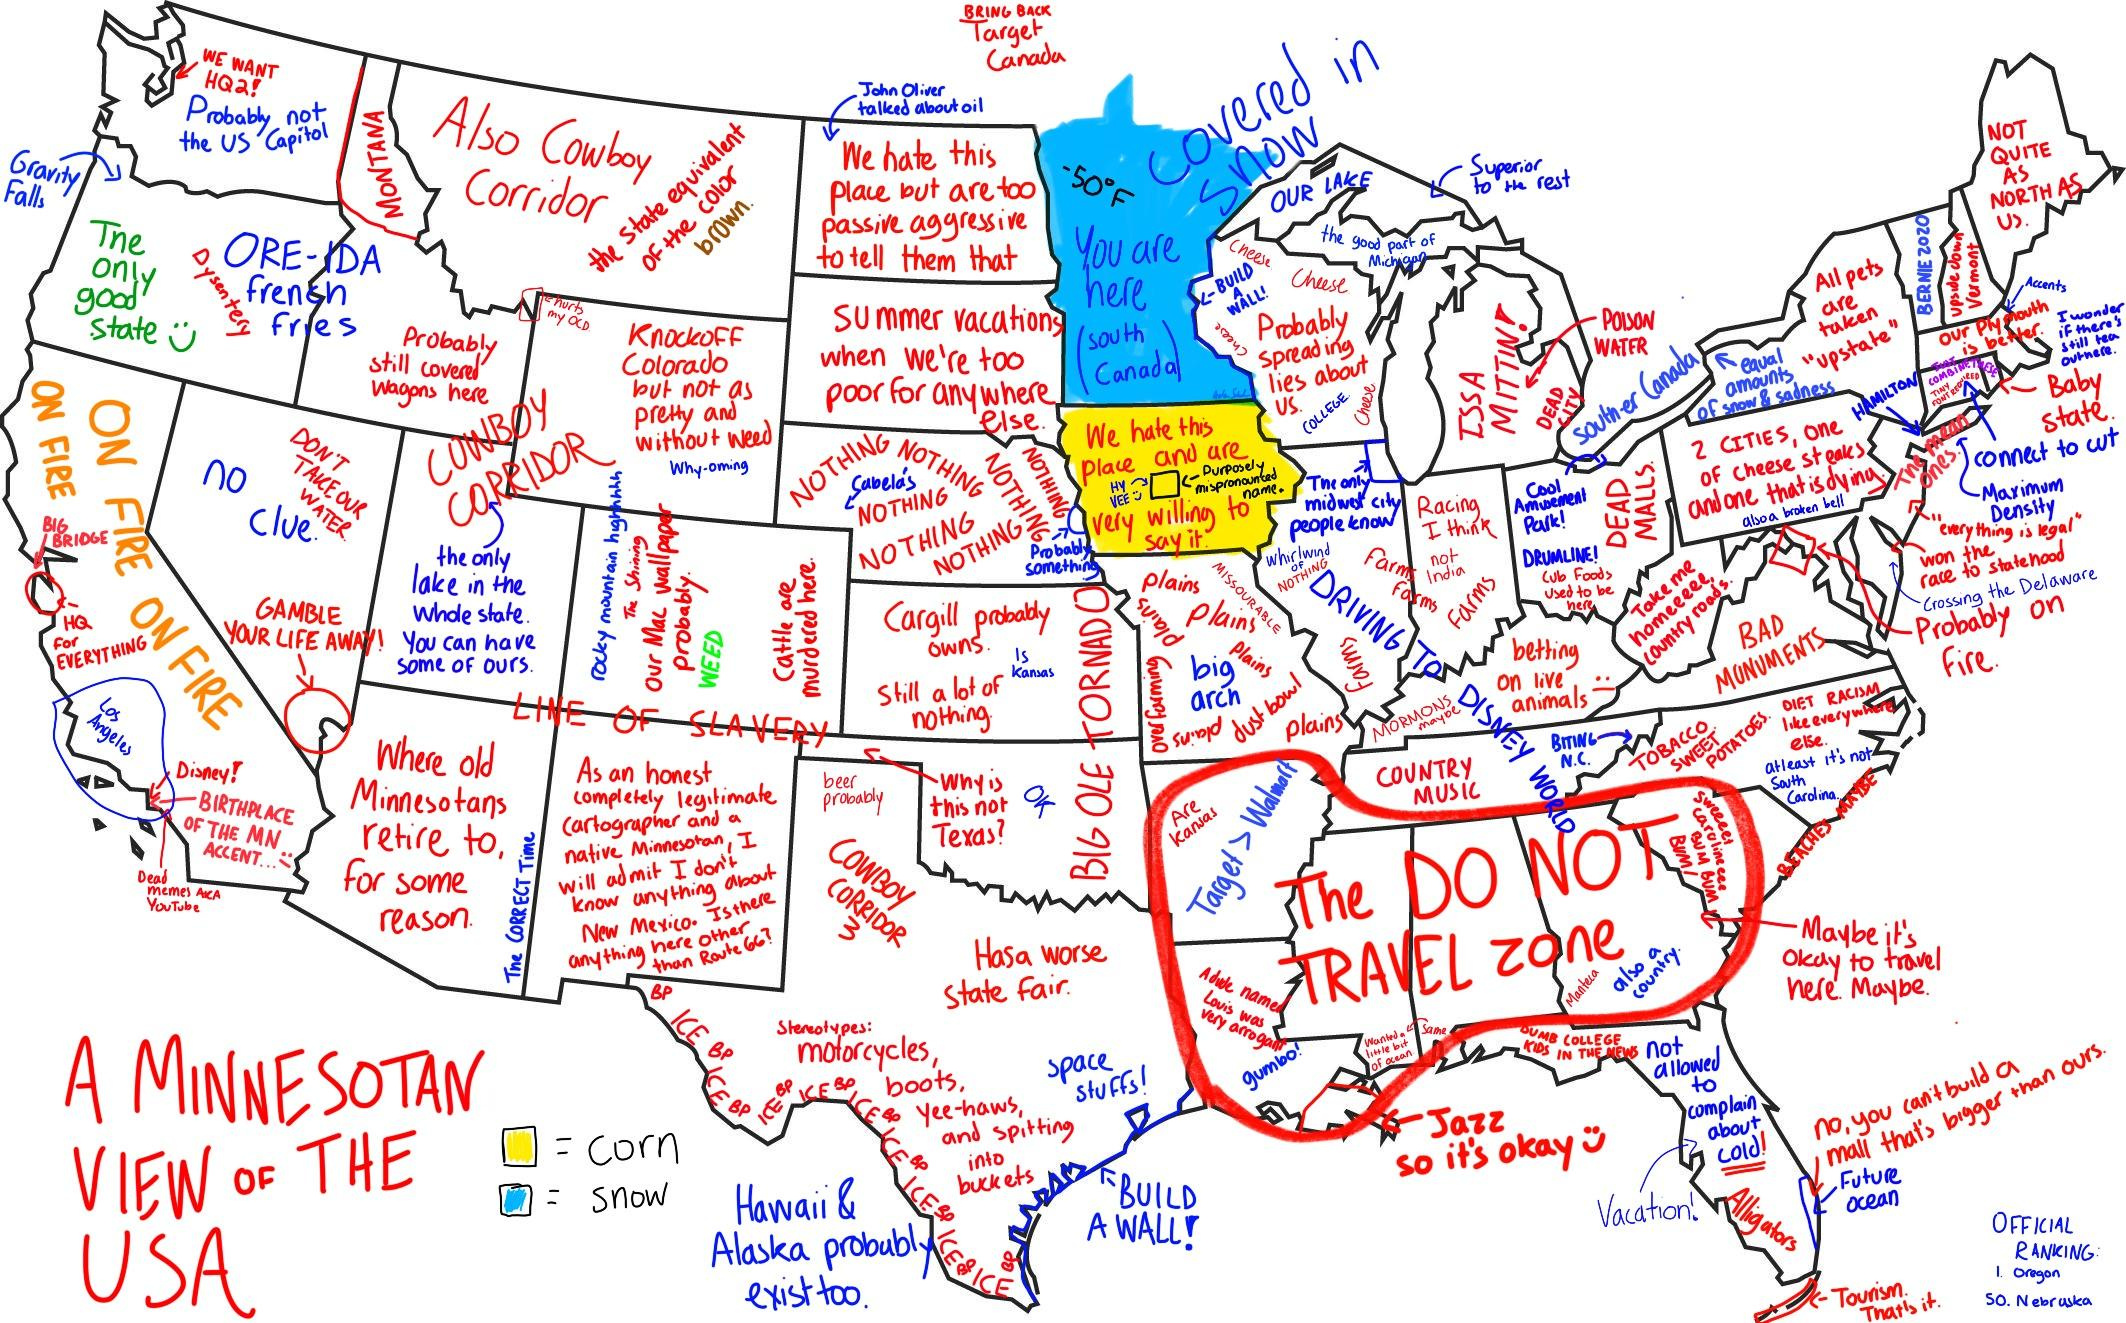 BRING BACK
Target
Canada
WE WANT
HQ2!
Probably not
the US Capitol
Gravity
Falls
MONTANA
Also Cowboy
Corridor
the state equivalent
of the color
brown.
John Oliver
talked about oil
We hate this
place but are too
passive aggressive
to tell them that
-50°F
You are
here
(south
Canada)
Covered in
snow
OUR LAKE
Superior
to the rest
the good part of
Michigan
NOT
QUITE
AS
NORTH AS
US.
The
only
good
state
Dysentery
ORE-IDA
french
fries
Probably
still covered
wagons here
hurts
my OCD
Knockoff
Colorado
but not as
pretty and
without weed
Why-oming
Summer vacations
when we're too
poor for anywhere
else.
Cheese
BUILD
A
WALL!
Cheese
Cheese
Probably
spreading
lies about
us.
COLLEGE.
Cheese
ISSA
MITTIN!
POISON
WATER
DEAD
CITY
southier Canada
equal
amounts
of snow & sadness
All pets
are
taken
"upstate"
BERNIE 2020
upside down
Vermont
Accents
our Plymouth
is better.
I wonder
if there's
still tea
out here.
JUST
COMBINE THESE
TINY
FONT REQUIRED
Baby
state.
connect to cut
HAMILTON
The mean
ones.
Maximum
Density
ON FIRE
ON FIRE
ON FIRE
BIG
BRIDGE
HQ
for
EVERYTHING
Los
Angeles
Disney!
BIRTHPLACE
OF THE MN
ACCENT...
Dead
memes AKA
YouTube
no
clue.
DON'T
TAKE OUR
WATER
GAMBLE
YOUR LIFE AWAY!
COWBOY
CORRIDOR
the only
lake in the
whole state.
You can have
some of ours.
rocky mountain highhhhh
The Shining
our Mac wallpaper
probably.
WEED
Cattle are
murdered here.
NOTHING
NOTHING
NOTHING
NOTHING
Cabela's
NOTHING
NOTHING
NOTHING
Probably
something
We hate this
place and are
HY
VEE
Purposely
mispronounced
name.
very willing to
say it.
The only
midwest city
people know
Whirlwind
of
NOTHING
Farms
Farms
DRIVING TO DISNEY WORLD
Racing
I think
not
India
Farms
Farms
Cool
Amusement
Park!
DRUMLINE!
Cub Foods
used to be
here
DEAD
MALLS.
2 CITIES, one
of cheese steaks
and one that is dying
also a broken bell
"everything is legal"
won the
race to statehood
Crossing the Delaware
Probably on
fire.
Take me
homeeeee,
country roads.
BAD
MUNUMENTS
betting
on live
animals
MORMONS
maybe
Cargill probably
owns.
Is
Kansas
Still a lot of
nothing.
BIG OLE TORNADO
plains
MISSOURABLE
plains
plains
plains
big
arch
overfarming
plains
dust bowl
plains
LINE OF SLAVERY
Where old
Minnesotans
retire to,
for some
reason.
The CORRECT Time
As an honest
completely legitimate
cartographer and a
native Minnesotan, I
will admit I don't
know anything about
New Mexico. Is there
anything here other
than Route 66?
beer
probably
Why is
this not
Texas?
OK
COWBOY
CORRIDOR
3
Has a worse
state fair.
Stereotypes:
motorcycles,
boots,
yee-haws,
and spitting
into
buckets
BP
ICE
BP
ICE
BP
ICE
BP
ICE
BP
ICE
BP
ICE
BP
ICE
BP
ICE
BP
ICE
BP
space
stuffs!
BUILD
A WALL!
Are
Kansas
Target > Walmart
The DO NOT
TRAVEL zone
A dude named
Louis was
very arrogant
gumbo!
Wanted a
little bit
of ocean
Same
Jazz
so it's okay
COUNTRY
MUSIC
BITING
N.C.
TOBACCO.
SWEET
POTATOES.
DIET RACISM
like everywhere
else.
atleast it's not
South
Carolina.
BEACHES MAYBE
Sweeeet
Carolineeee
BUM BUM
BUM!
Maybe it's
okay to travel
here. Maybe.
Manteca
also a
country.
DUMB COLLEGE
KIDS IN THE NEWS
not
allowed
to
complain
about
cold!
Vacation!
Alligators
no, you can't build a
mall that's bigger than ours.
Future
ocean
Tourism.
That's it.
A MINNESOTAN
VIEW OF THE
USA
= corn
= snow
Hawaii &
Alaska probably
exist too.
OFFICIAL
RANKING:
1. Oregon
50. Nebraska